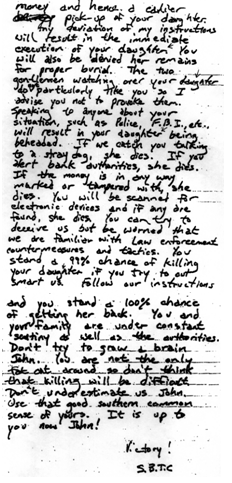 money and hence a earlier
delivery pick-up of your daughter.
Any deviation of my instructions
will result in the immediate
execution of your daughter. You
will also be denied her remains
for proper burial. The two
gentlemen watching over your daughter
do particularly like you so I
advise you not to provoke them.
Speaking to anyone about your
situation, such as Police, F.B.I., etc.,
will result in your daughter being
beheaded. If we catch you talking
to a stray dog, she dies. If you
alert bank authorities, she dies.
If the money is in any way
marked or tampered with, she
dies. You will be scanned for
electronic devices and if any are
found, she dies. You can try to
deceive us but be warned that
we are familiar with Law enforcement
countermeasures and tactics. You
stand a 99% chance of killing
your daughter if you try to out
smart us. Follow our instructions
and you stand a 100% chance
of getting her back. You and
your family are under constant
scrutiny as well as the authorities.
Don't try to grow a brain
John. You are not the only
fat cat around so don't think
that killing will be difficult.
Don't underestimate us John.
Use that good southern common
sense of yours. It is up to
you now John!
Victory!
S.B.T.C